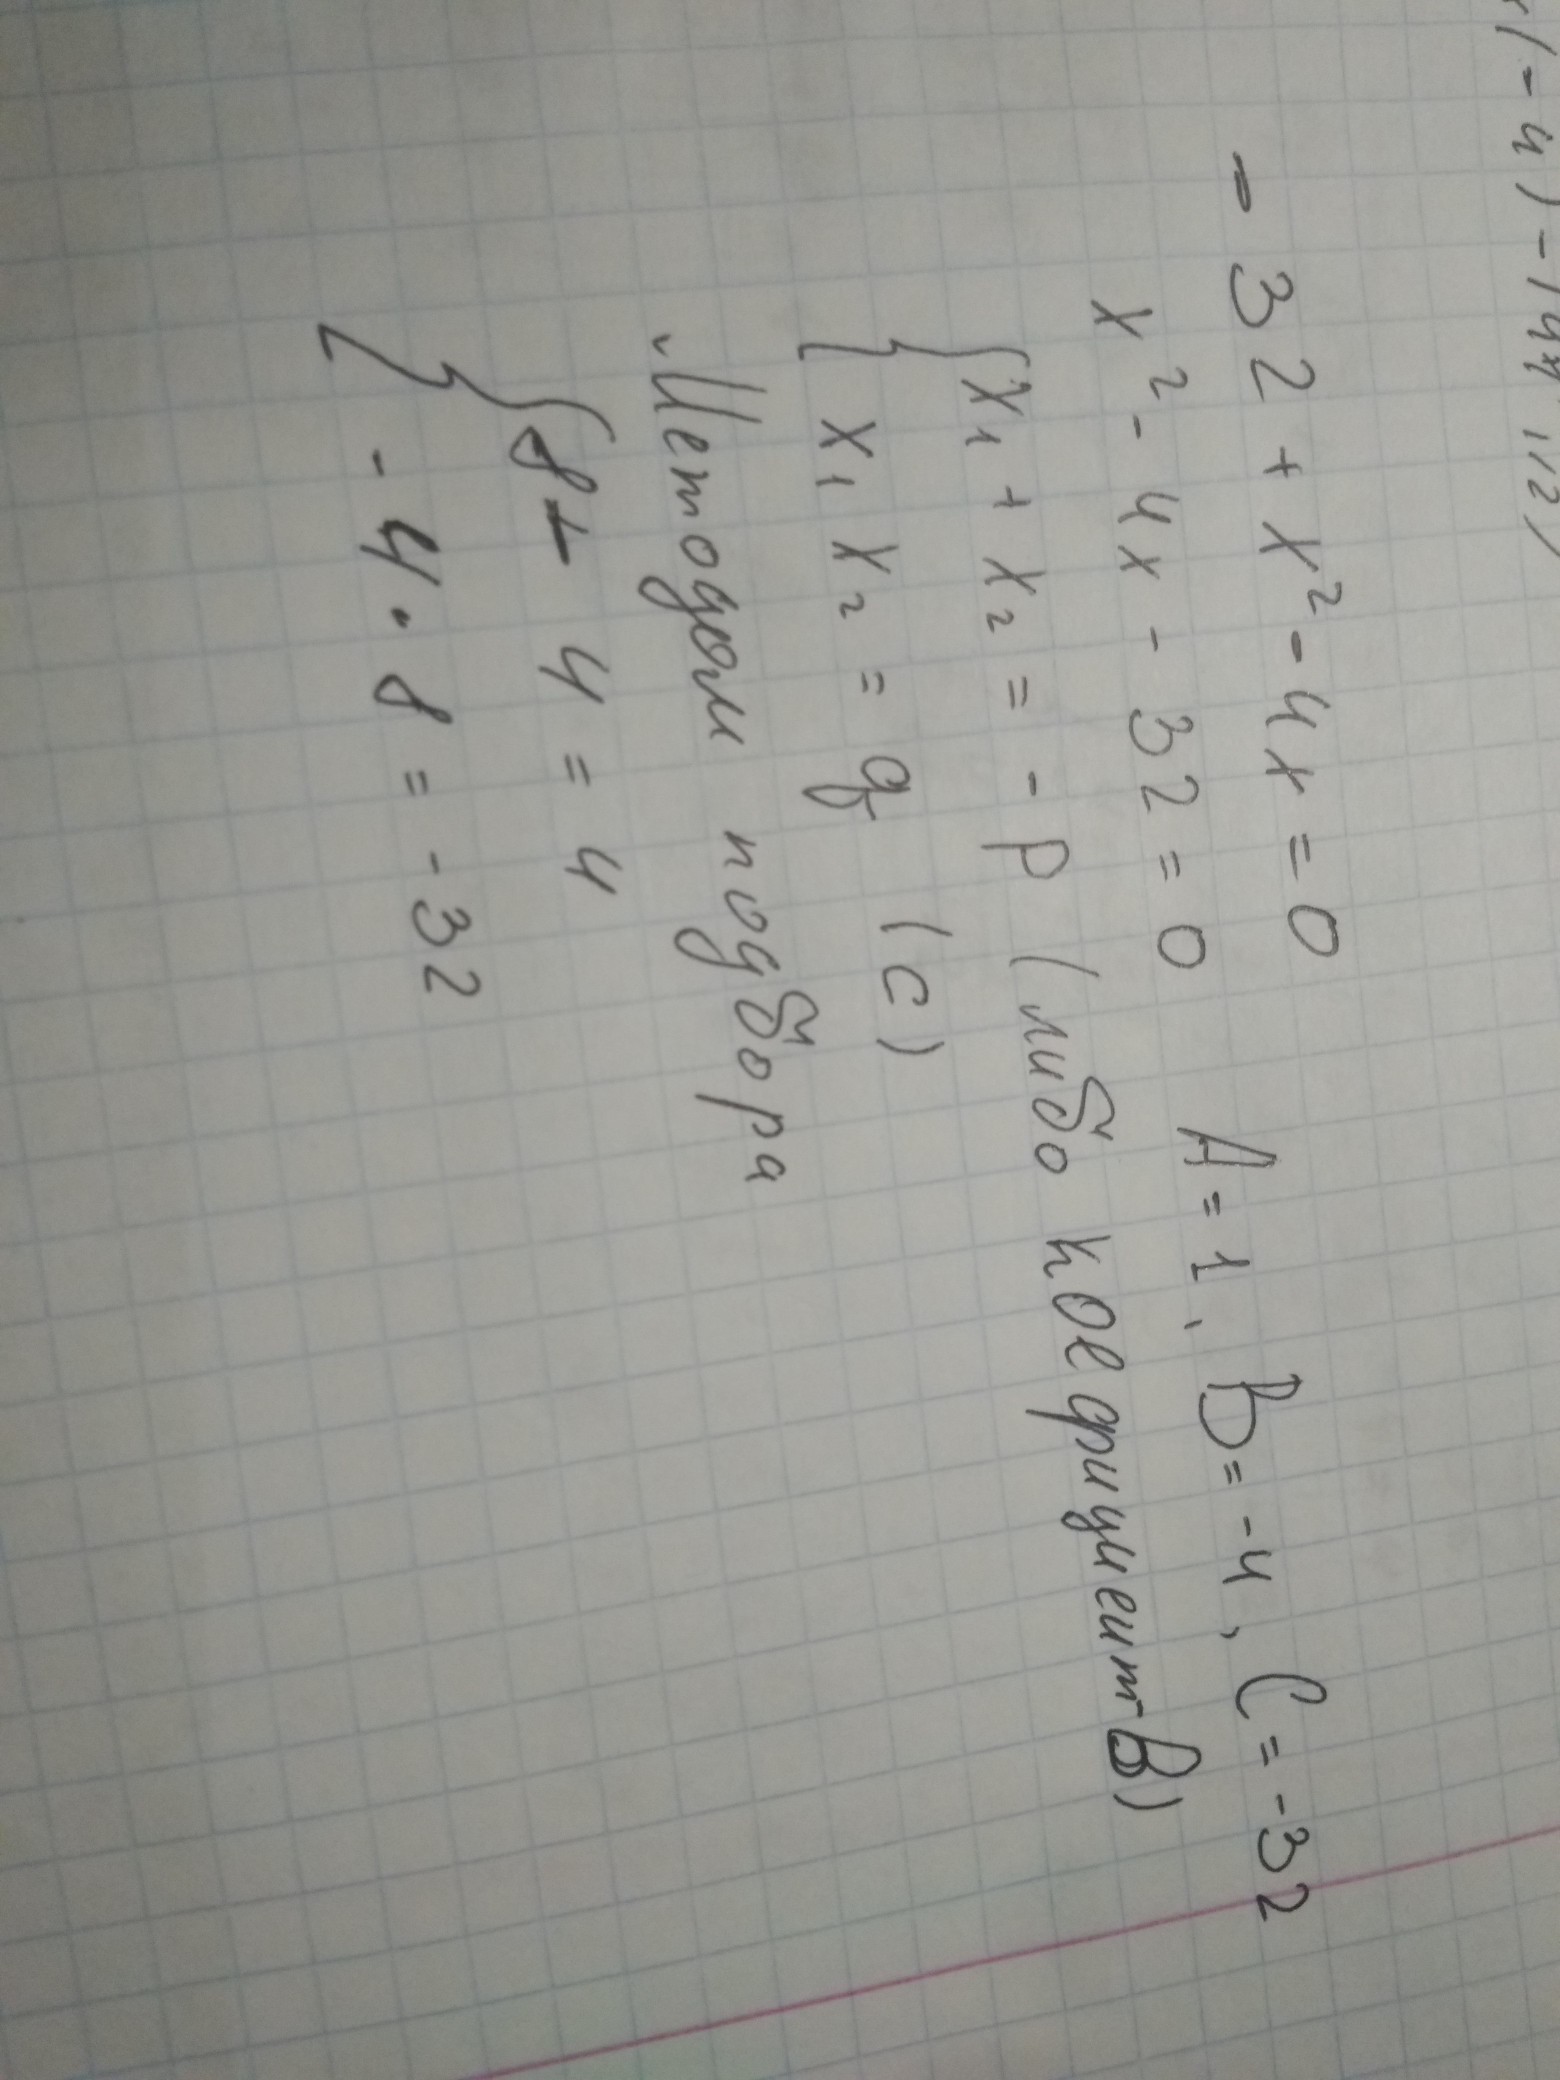 - 32 + x² - 4x = 0
x² - 4x - 32 = 0 A = 1, B = -4, C = -32
{ x₁ + x₂ = - p (либо коефициент B)
x₁ x₂ = q (c)
Методом подбора
{ 8 - 4 = 4
- 4 · 8 = -32